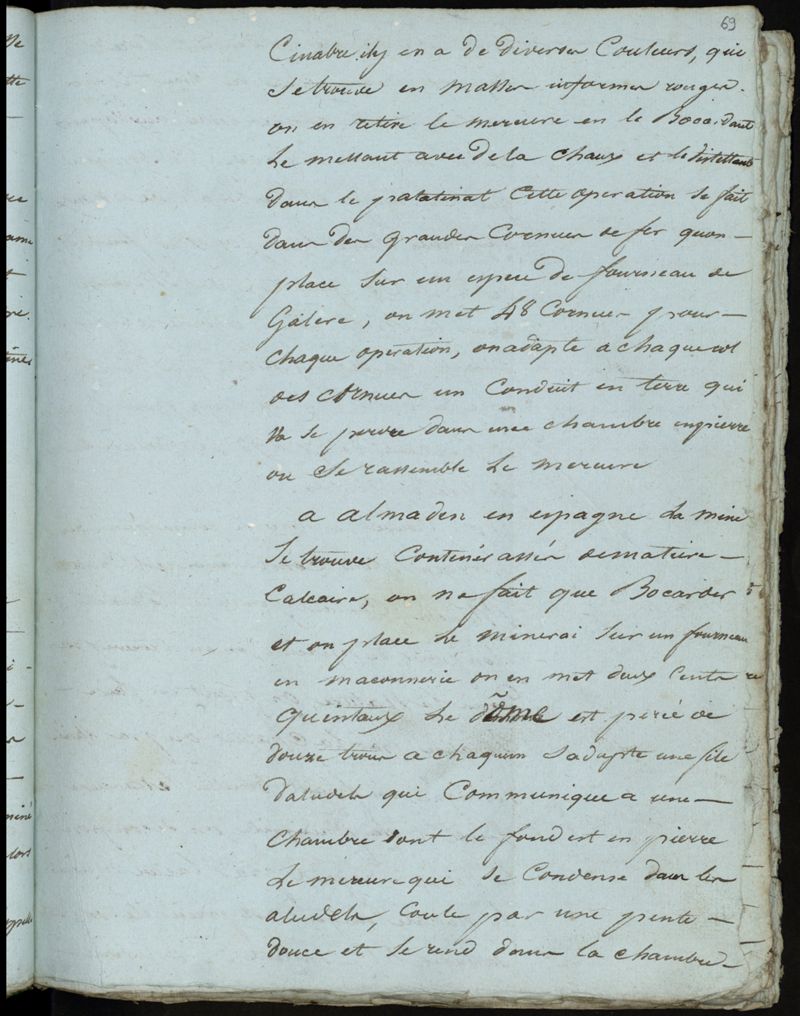 69
Cinabre. il y en a de diverses Couleurs, qui
se trouve en masses informes rouges.
on en retire le mercure en le Bocardant
Le mettant avec de la chaux et le distillant
dans le palatinat Cette operation se fait
dans des grandes Cornues de fer quon
place sur un espece de fourneau de
Galere, on met 48 Cornues pour
chaque operation, on adapte a chaque col
des cornues un Conduit en terre qui
va se perdre dans une chambre en pierre
ou se rassemble Le mercure
a almaden en espagne La mine
se trouve Contenir assés de matiere
Calcaire, on ne fait que Bocarder
et on place Le minerai sur un fourneau
en maconnerie on en met deux Cents
quintaux Le dome est percé de
douze trous a chaquun s'adapte une file
daludels qui Communique a une
chambre dont le fond est en pierre
Le mercure qui se Condense dans les
aludels, Coule par une pente
douce et se rend dans la chambre